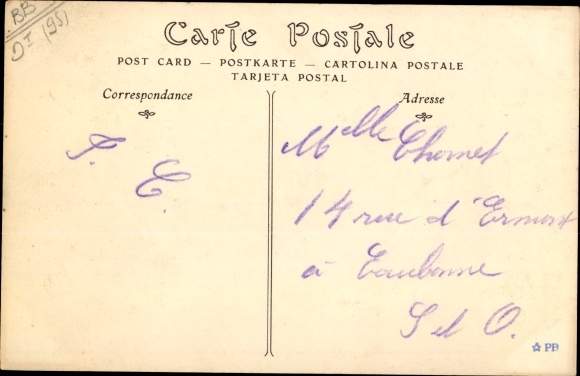 BB
DI (95)
Carte Postale
POST CARD — POSTKARTE — CARTOLINA POSTALE
TARJETA POSTAL
Correspondance
Adresse
F. C.
Mlle Thomet
14 rue d'Ermont
à Eaubonne
S et O.
☆ PB